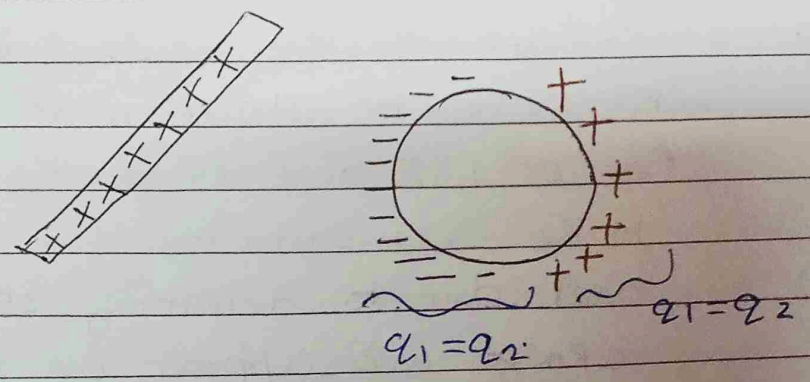 + + + + + + +
- - - - - - - - - - -
+ + + + + +
q1 = q2
q1 = q2